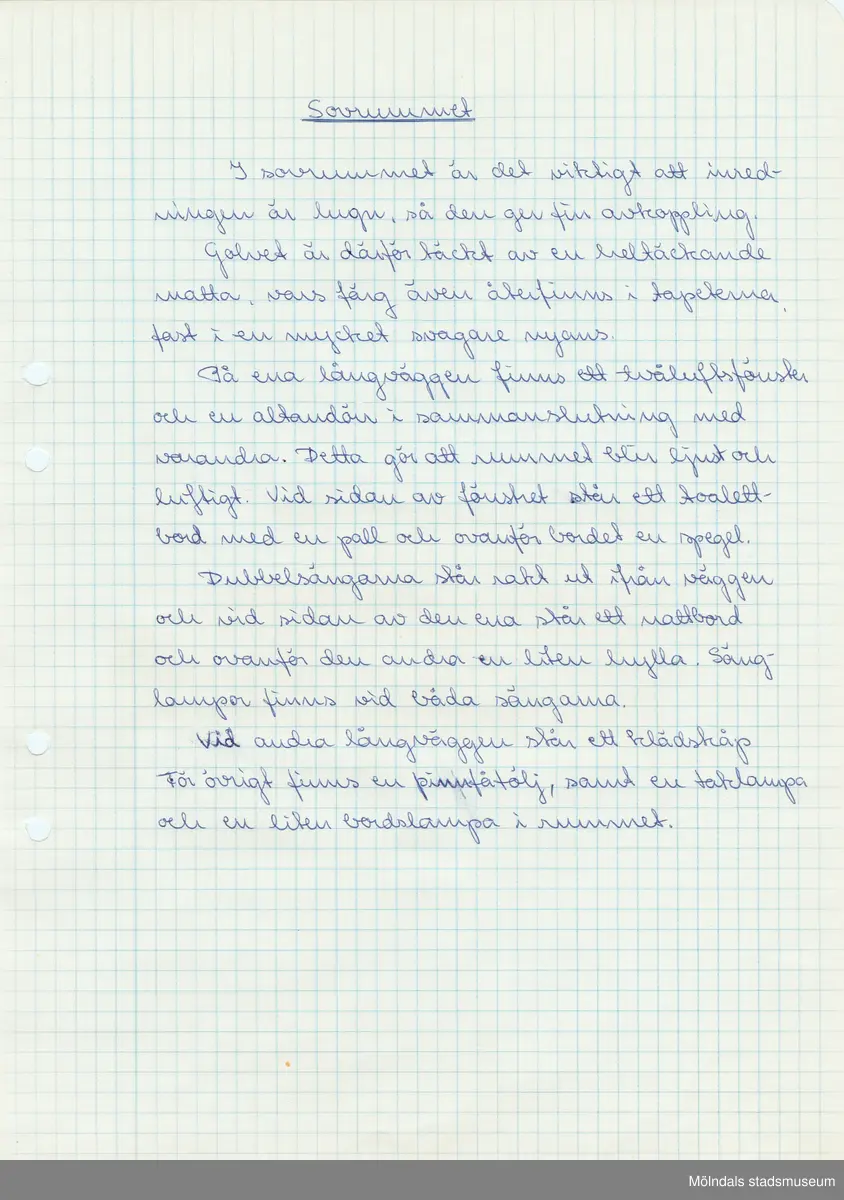 Sovrummet
I sovrummet är det viktigt att inred-
ningen är lugn, så den ger fin avkoppling.
Golvet är därför täckt av en heltäckande
matta, vars färg även återfinns i tapeterna,
fast i en mycket svagare nyans.
På ena långväggen finns ett tvåluftsfönster
och en altandörr i sammanslutning med
varandra. Detta gör att rummet blir ljust och
luftigt. Vid sidan av fönstret står ett toalett-
bord med en pall och ovanför bordet en spegel.
Dubbelsängarna står rakt ut ifrån väggen
och vid sidan av den ena står ett nattbord
och ovanför den andra en liten hylla. Säng-
lampor finns vid båda sängarna.
Vid andra långväggen står ett klädskåp
För övrigt finns en pinnfåtölj, samt en taklampa
och en liten bordslampa i rummet.
Mölndals stadsmuseum